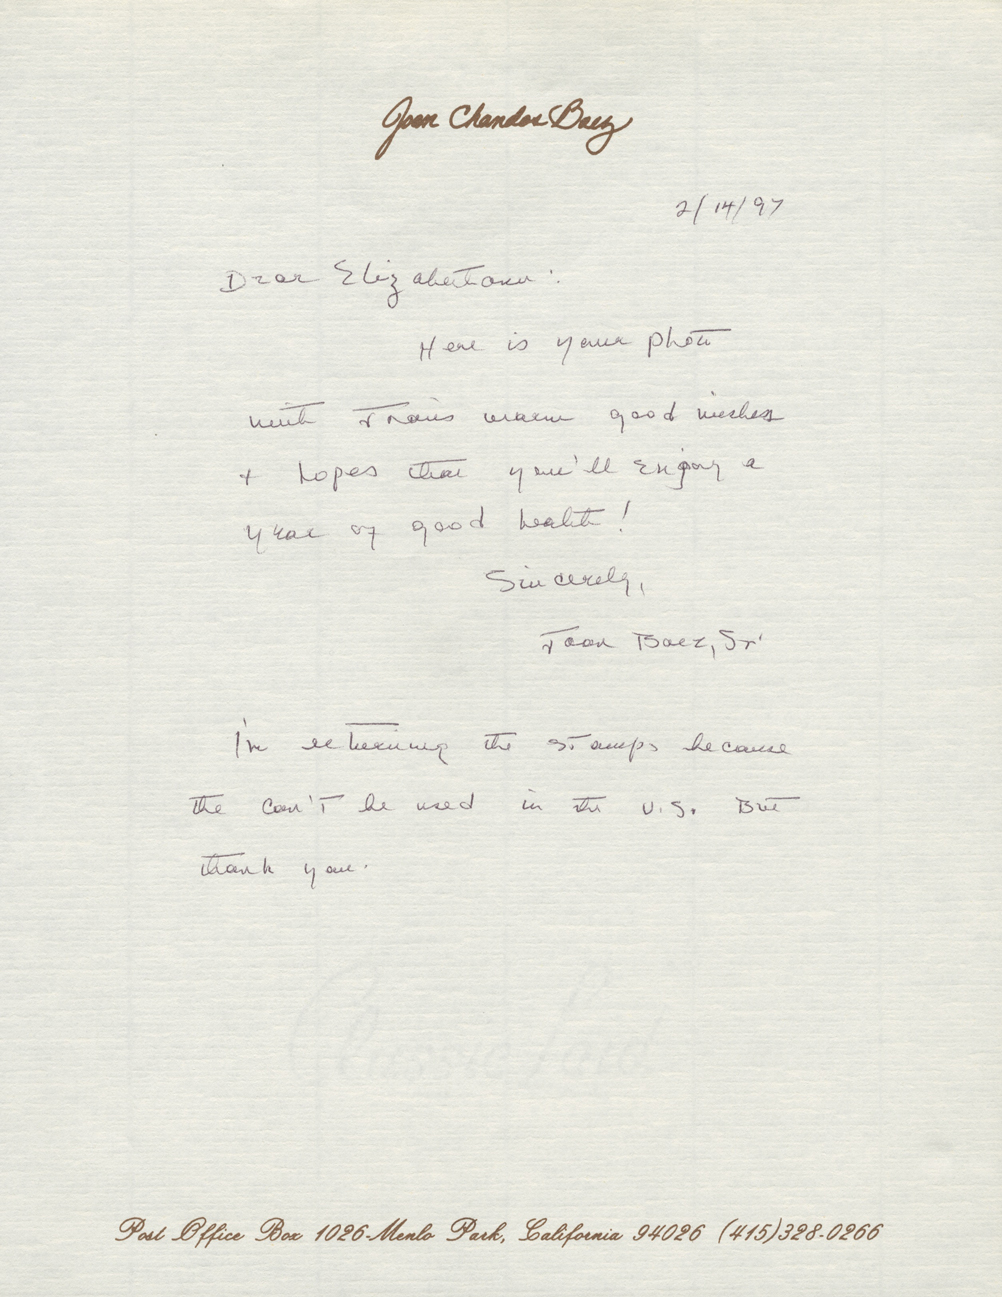 Joan Chandos Baez
2/14/97
Dear Elizabethann:
Here is your photo
with Joan's warm good wishes
+ hopes that you'll enjoy a
year of good health!
Sincerely,
Joan Baez, Sr.
I'm returning the stamps because
the can't be used in the U.S. But
thank you.
Classic Laid
Post Office Box 1026-Menlo Park, California 94026 (415)328-0266